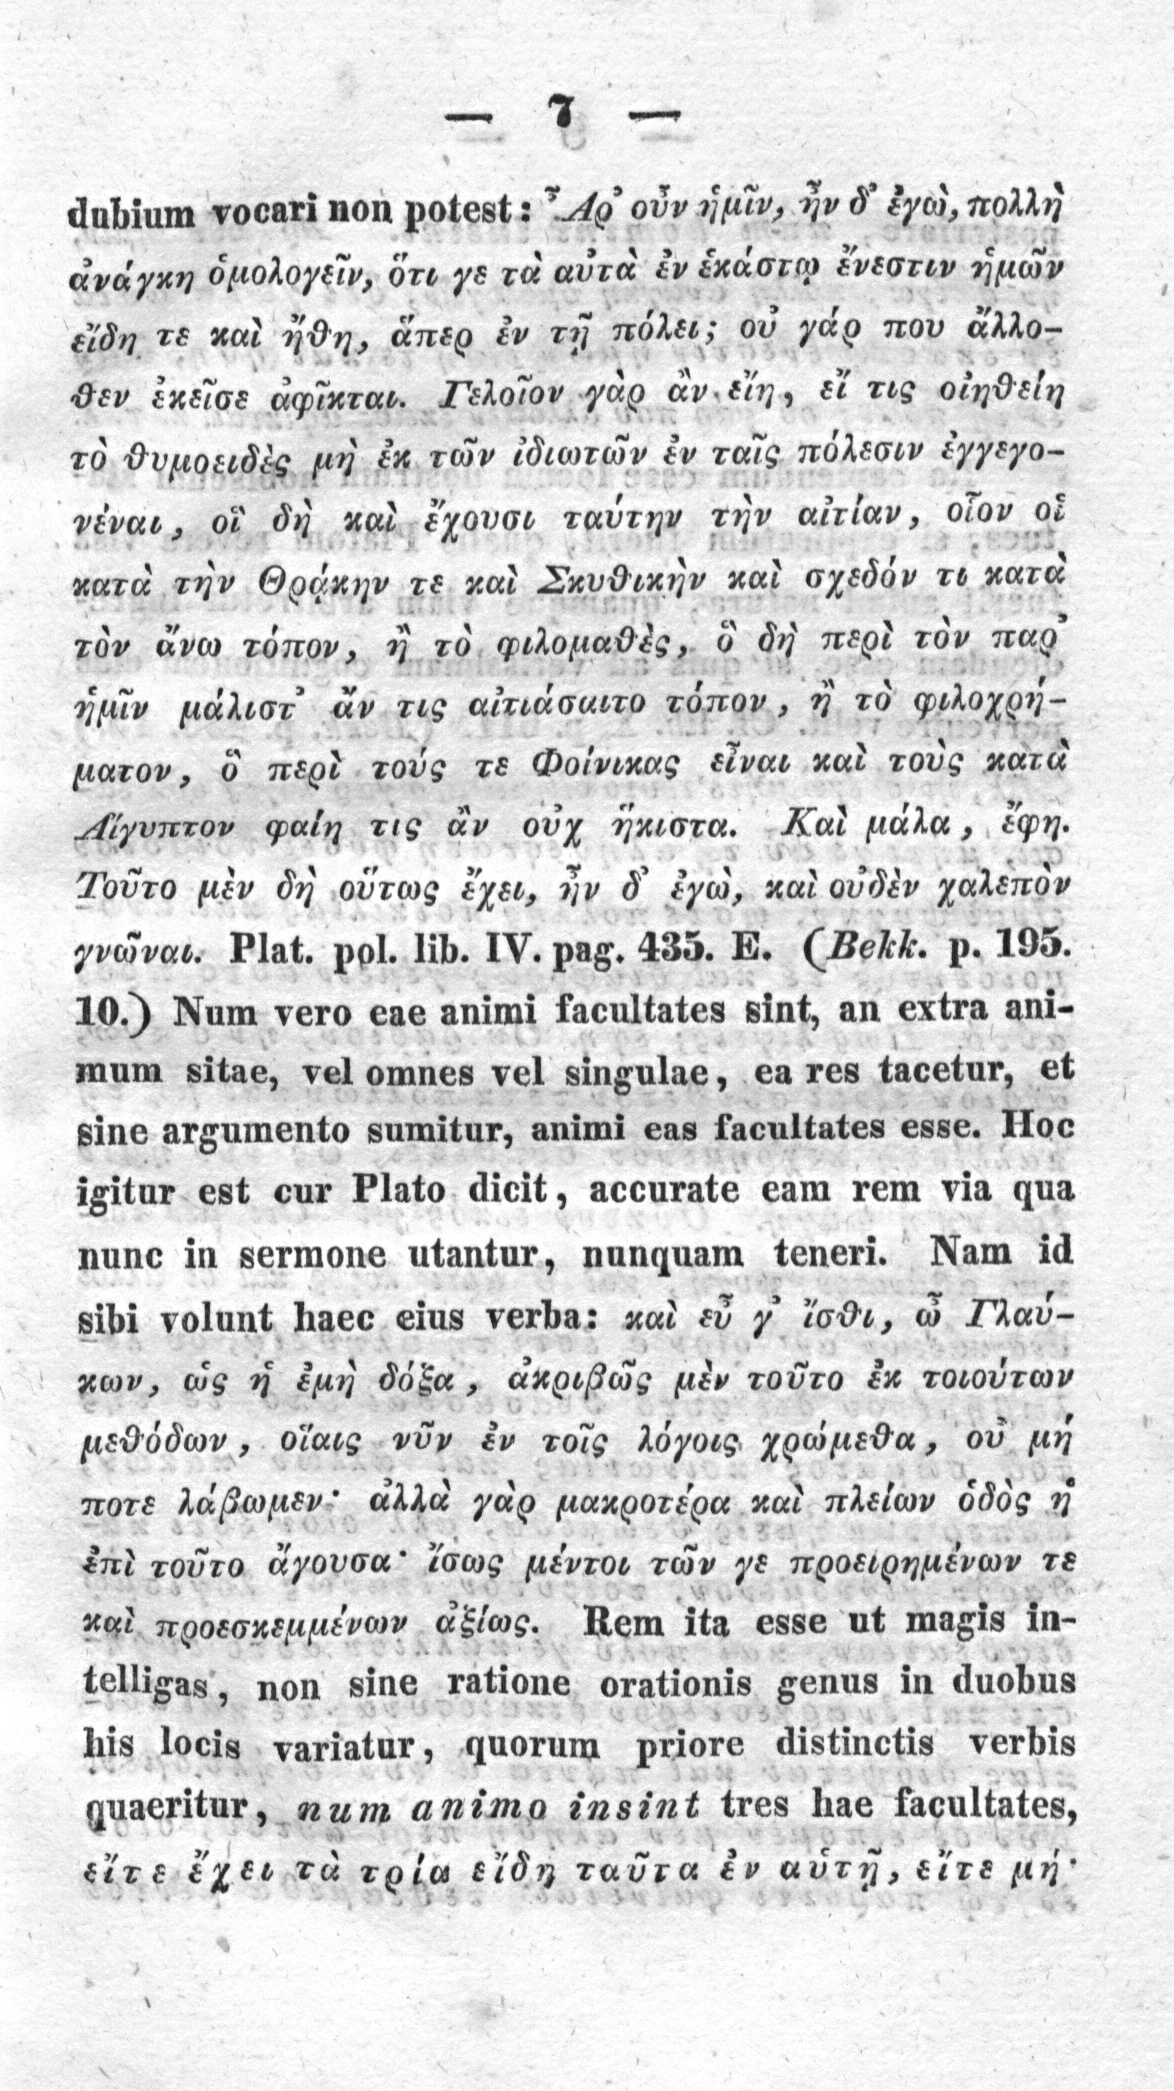 — 7 —
dubium vocari non potest: Ἆρ' οὖν ἡμῖν, ἦν δ' ἐγὼ, πολλὴ
ἀνάγκη ὁμολογεῖν, ὅτι γε τὰ αὐτὰ ἐν ἑκάστῳ ἔνεστιν ἡμῶν
εἴδη τε καὶ ἤθη, ἅπερ ἐν τῇ πόλει; οὐ γάρ που ἄλλο-
θεν ἐκεῖσε ἀφῖκται. Γελοῖον γὰρ ἂν εἴη, εἴ τις οἰηθείη
τὸ θυμοειδὲς μὴ ἐκ τῶν ἰδιωτῶν ἐν ταῖς πόλεσιν ἐγγεγο-
νέναι, οἳ δὴ καὶ ἔχουσι ταύτην τὴν αἰτίαν, οἷον οἱ
κατὰ τὴν Θρᾴκην τε καὶ Σκυθικὴν καὶ σχεδόν τι κατὰ
τὸν ἄνω τόπον, ἢ τὸ φιλομαθὲς, ὃ δὴ περὶ τὸν παρ'
ἡμῖν μάλιστ' ἄν τις αἰτιάσαιτο τόπον, ἢ τὸ φιλοχρή-
ματον, ὃ περὶ τούς τε Φοίνικας εἶναι καὶ τοὺς κατὰ
Αἴγυπτον φαίη τις ἂν οὐχ ἥκιστα. Καὶ μάλα, ἔφη.
Τοῦτο μὲν δὴ οὕτως ἔχει, ἦν δ' ἐγὼ, καὶ οὐδὲν χαλεπὸν
γνῶναι. Plat. pol. lib. IV. pag. 435. E. (Bekk. p. 195.
10.) Num vero eae animi facultates sint, an extra ani-
mum sitae, vel omnes vel singulae, ea res tacetur, et
sine argumento sumitur, animi eas facultates esse. Hoc
igitur est cur Plato dicit, accurate eam rem via qua
nunc in sermone utantur, nunquam teneri. Nam id
sibi volunt haec eius verba: καὶ εὖ γ' ἴσθι, ὦ Γλαύ-
κων, ὡς ἡ ἐμὴ δόξα, ἀκριβῶς μὲν τοῦτο ἐκ τοιούτων
μεθόδων, οἵαις νῦν ἐν τοῖς λόγοις χρώμεθα, οὐ μή
ποτε λάβωμεν· ἀλλὰ γὰρ μακροτέρα καὶ πλείων ὁδὸς ἡ
ἐπὶ τοῦτο ἄγουσα· ἴσως μέντοι τῶν γε προειρημένων τε
καὶ προεσκεμμένων ἀξίως. Rem ita esse ut magis in-
telligas, non sine ratione orationis genus in duobus
his locis variatur, quorum priore distinctis verbis
quaeritur, num animo insint tres hae facultates,
εἴτε ἔχει τὰ τρία εἴδη ταῦτα ἐν αὑτῇ, εἴτε μή·